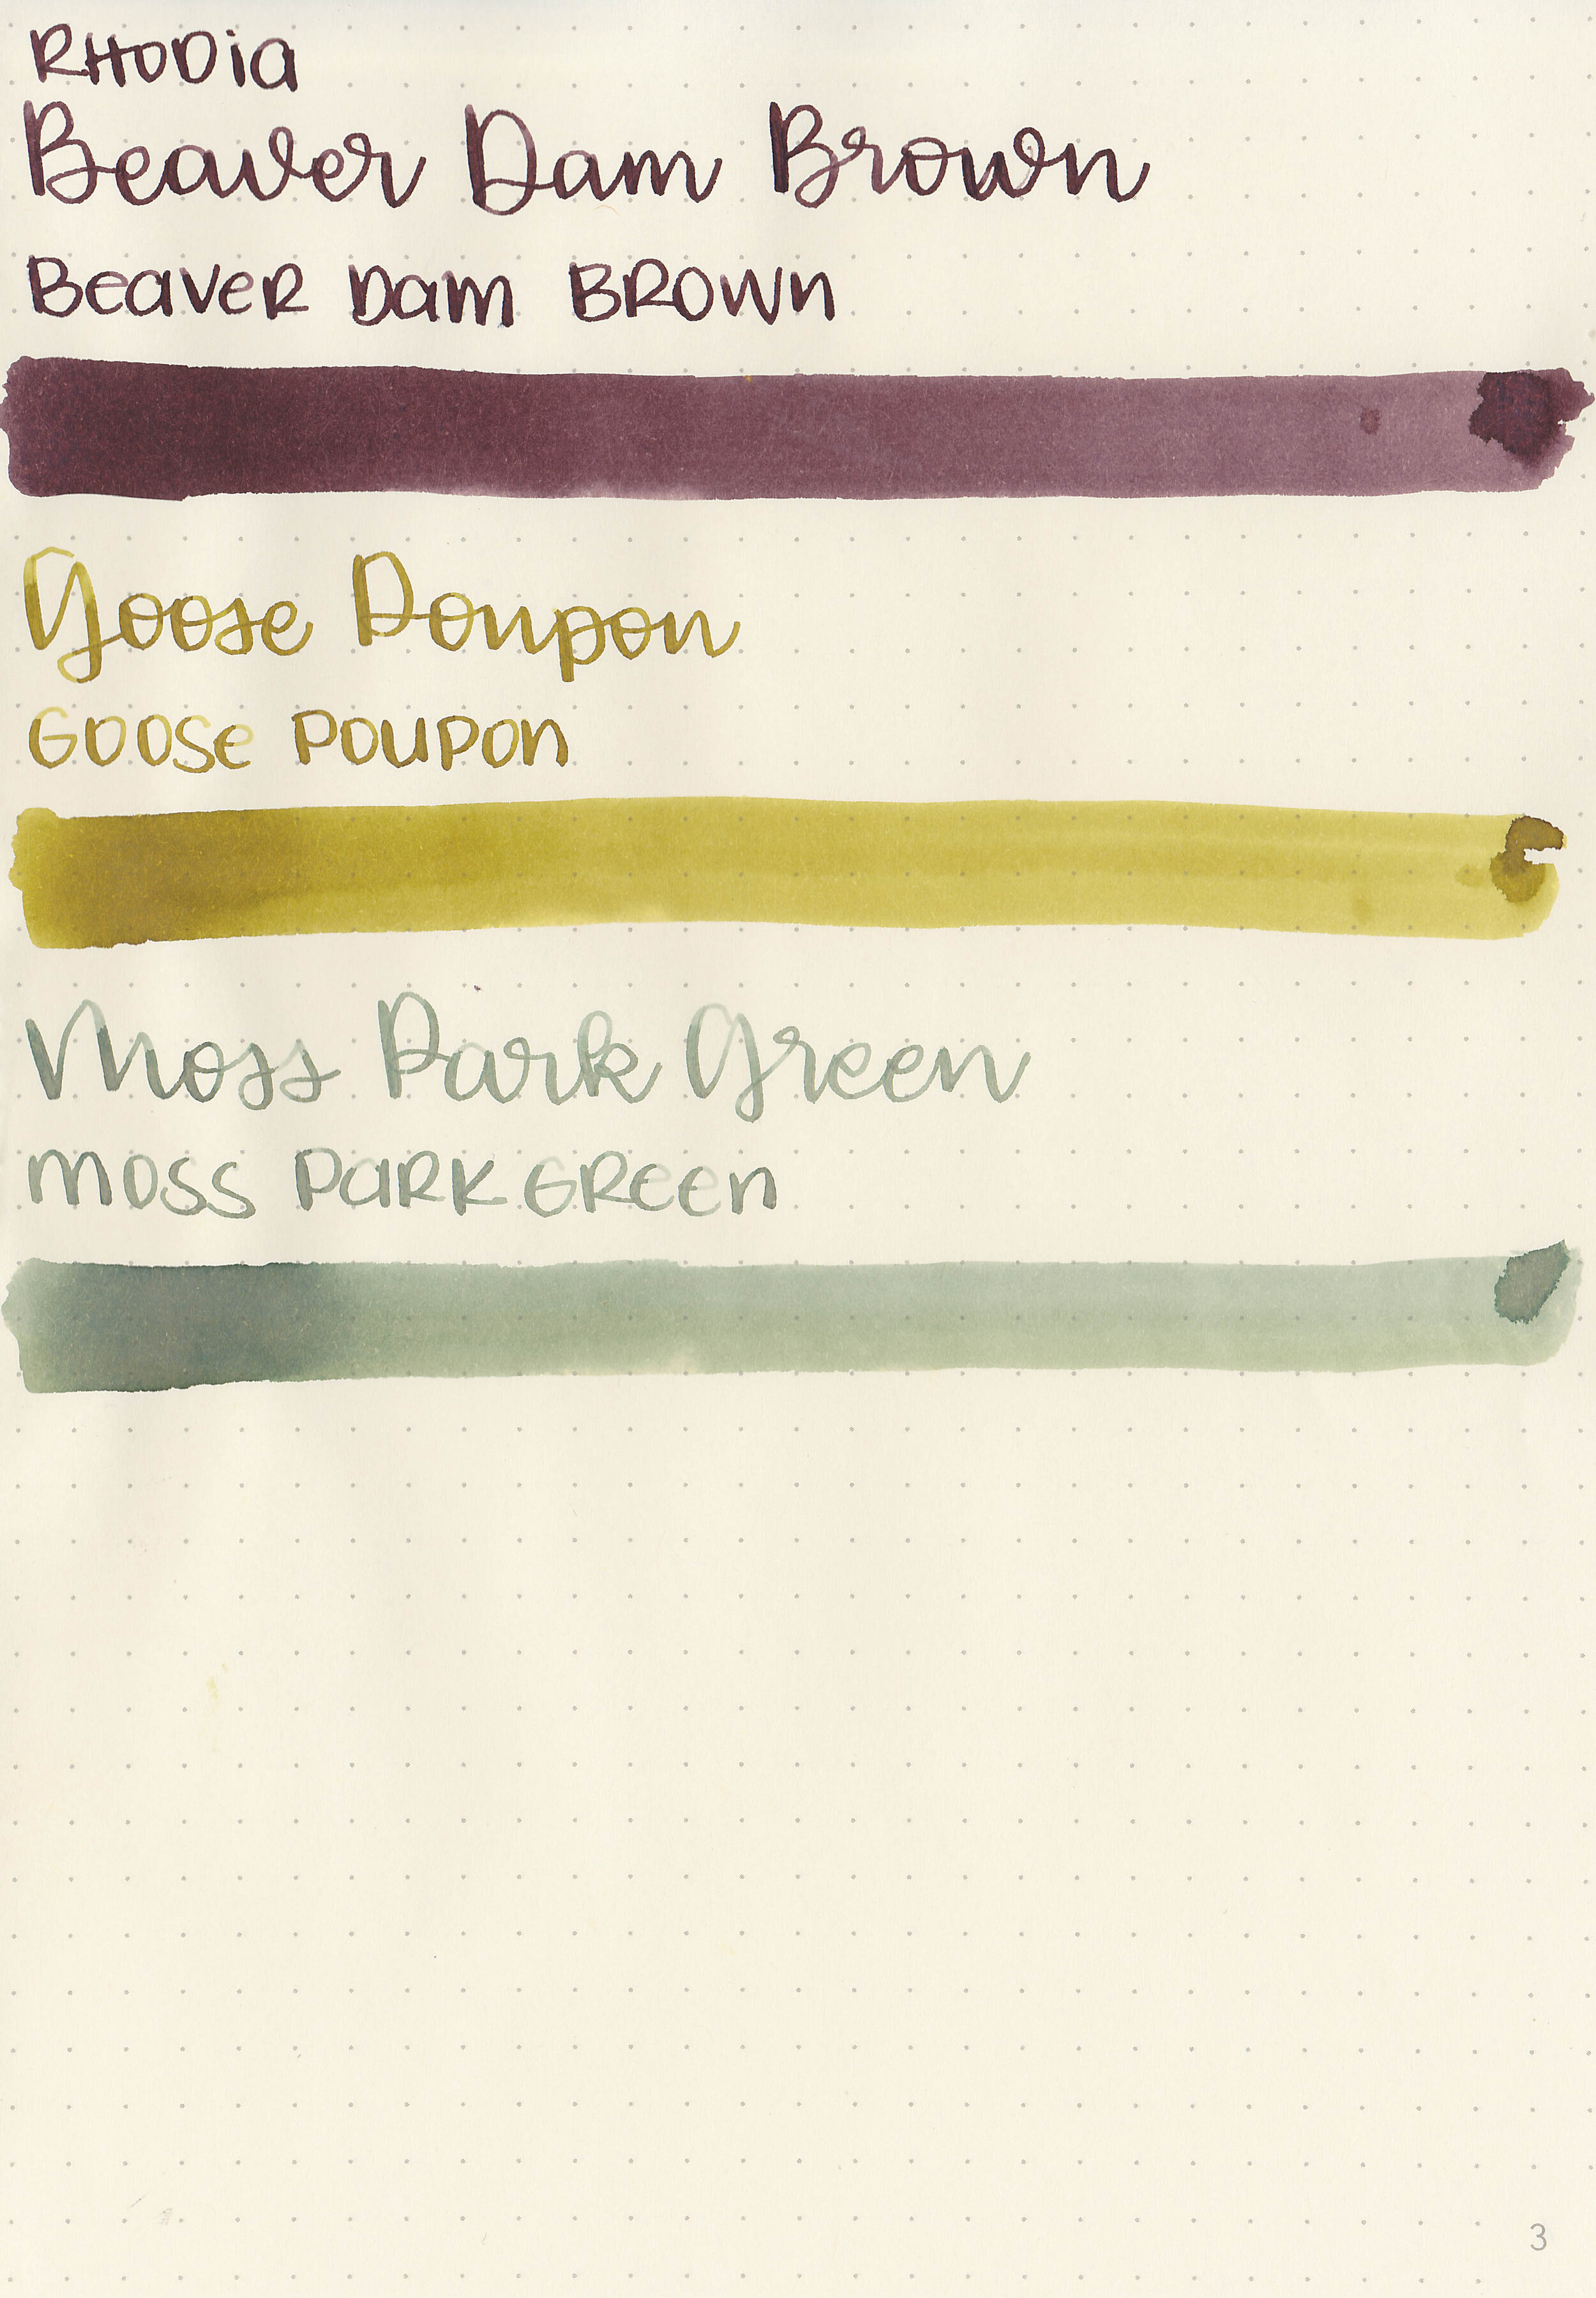 RHODia
Beaver Dam Brown
Beaver Dam BROWN
Goose Poupon
GOOSe POUPON
Moss Park Green
MOSS PARK GREEN
3